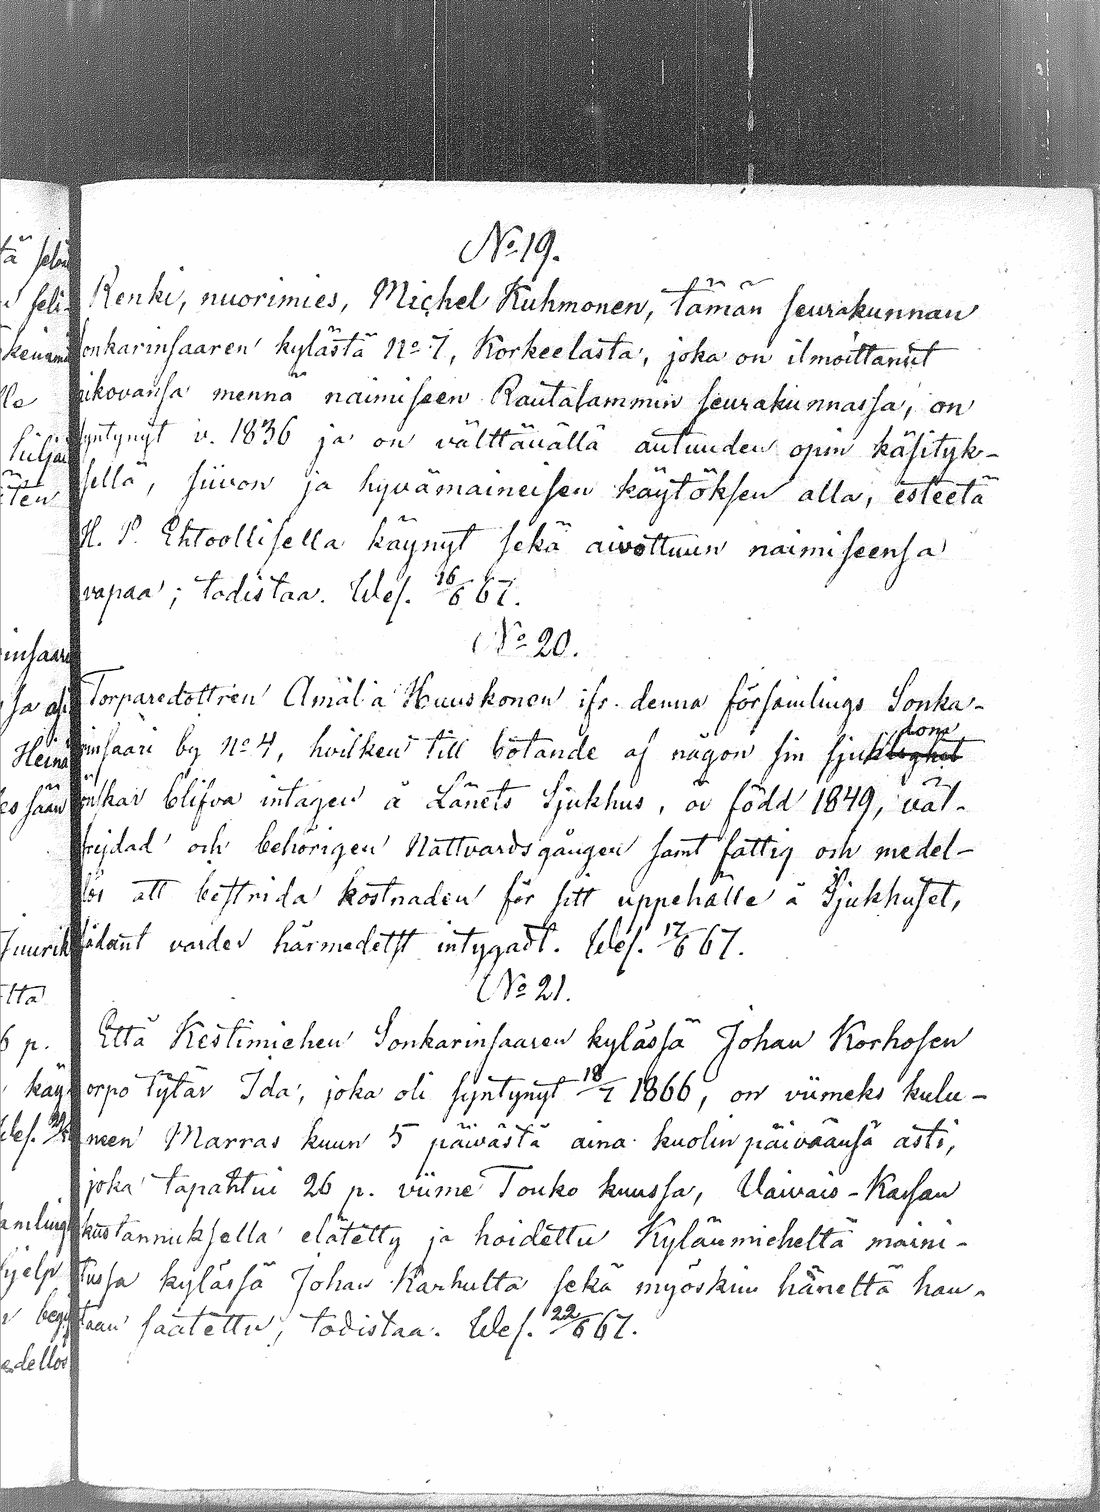 № 19.
Renki, nuorimies, Michel Kuhmonen, tämän seurakunnan
onkarinsaaren kylästä No 7, Korkeelasta, joka on ilmoittanut
aikovansa mennä naimiseen Rautalammin seurakunnassa, on
syntynyt v. 1836 ja on välttävällä autuuden opin käsityk-
sellä, siivon ja hyvämaineisen käytöksen alla, esteetä
H. P. Ehtoollisella käynyt sekä aivottuun naimiseensa
vapaa; todistaa. Wes. 16/6 67.
№ 20.
Torparedottren Amalia Huuskonen ifr. denna församlings Sonka-
rinsaari by No 4, hvilken till botande af någon sin sjukdom
önskar blifva intagen å Länets Sjukhus, är född 1849, väl-
frejdad och behörigen Nattvardsgången samt fattig och medel-
lös att bestrida kostnaden för sitt uppehälle å Sjukhuset,
sådant varder härmedelst intygadt. Wes. 17/6 67.
№ 21.
Että Kestimiehen Sonkarinsaaren kylässä Johan Korhosen
orpo tytär Ida, joka oli syntynyt 18/7 1866, on viimeks kulu-
neen Marras kuun 5 päivästä aina kuolinpäiväänsä asti,
joka tapahtui 26 p. viime Touko kuussa, Vaivais-Kassan
kustannuksella elätetty ja hoidettu Kylänmieheltä maini-
tussa kylässä Johan Karhulta sekä myöskin häneltä hau-
taan saatettu; todistaa. Wes. 22/6 67.